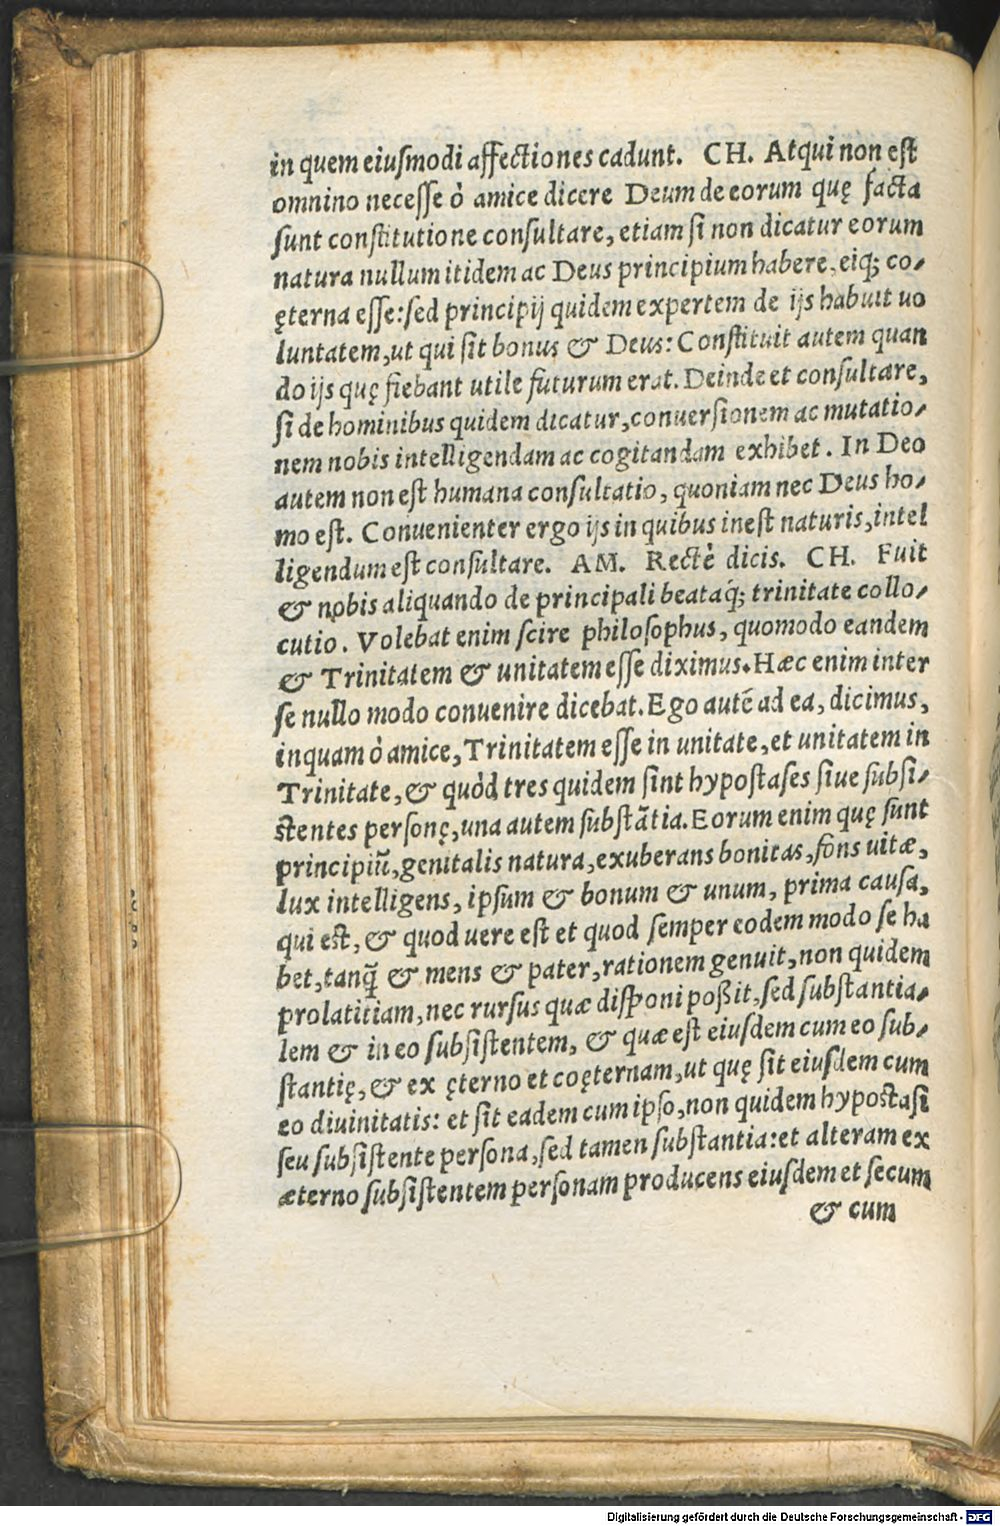 in quem eiuſmodi affectiones cadunt. CH. Atqui non eſt
omnino neceſſe ò amice dicere Deum de eorum quę facta
ſunt conſtitutione conſultare, etiam ſi non dicatur eorum
natura nullum itidem ac Deus principium habere, eiq; co/
ęterna eſſe: ſed principij quidem expertem de ijs habuit uo
luntatem, ut qui ſit bonus & Deus: Conſtituit autem quan
do ijs quę fiebant utile futurum erat. Deinde et conſultare,
ſi de hominibus quidem dicatur, conuerſionem ac mutatio/
nem nobis intelligendam ac cogitandam exhibet. In Deo
autem non eſt humana conſultatio, quoniam nec Deus ho/
mo eſt. Conuenienter ergo ijs in quibus ineſt naturis, intel
ligendum eſt conſultare. AM. Rectè dicis. CH. Fuit
& nobis aliquando de principali beataq́; trinitate collo/
cutio. Volebat enim ſcire philoſophus, quomodo eandem
& Trinitatem & unitatem eſſe diximus. Hæc enim inter
ſe nullo modo conuenire dicebat. Ego autē ad ea, dicimus,
inquam ò amice, Trinitatem eſſe in unitate, et unitatem in
Trinitate, & quòd tres quidem ſint hypoſtaſes ſiue ſubſi/
ſtentes perſonę, una autem ſubſtātia. Eorum enim quę ſunt
principiū, genitalis natura, exuberans bonitas, fons uitæ,
lux intelligens, ipſum & bonum & unum, prima cauſa,
qui eſt, & quod uere eſt et quod ſemper eodem modo ſe ha
bet, tanq̄ & mens & pater, rationem genuit, non quidem
prolatitiam, nec rurſus quæ diſponi poßit, ſed ſubſtantia/
lem & in eo ſubſiſtentem, & quæ eſt eiuſdem cum eo ſub/
ſtantię, & ex ęterno et coęternam, ut quę ſit eiuſdem cum
eo diuinitatis: et ſit eadem cum ipſo, non quidem hypoſtaſi
ſeu ſubſiſtente perſona, ſed tamen ſubſtantia: et alteram ex
æterno ſubſiſtentem perſonam producens eiuſdem et ſecum
& cum
Digitalisierung gefördert durch die Deutsche Forschungsgemeinschaft - DFG